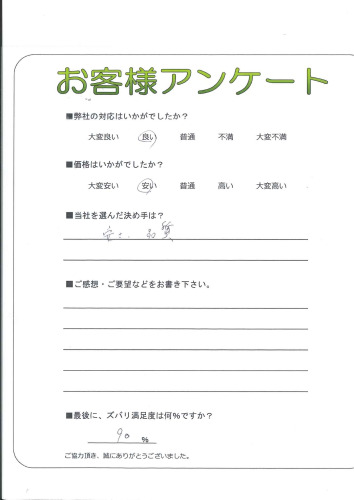 お客様アンケート
■弊社の対応はいかがでしたか?
大変良い 良い 普通 不満 大変不満
■価格はいかがでしたか?
大変安い 安い 普通 高い 大変高い
■当社を選んだ決め手は?
安さ、品質
■ご感想・ご要望などをお書き下さい。
■最後に、ズバリ満足度は何%ですか?
90 %
ご協力頂き、誠にありがとうございました。